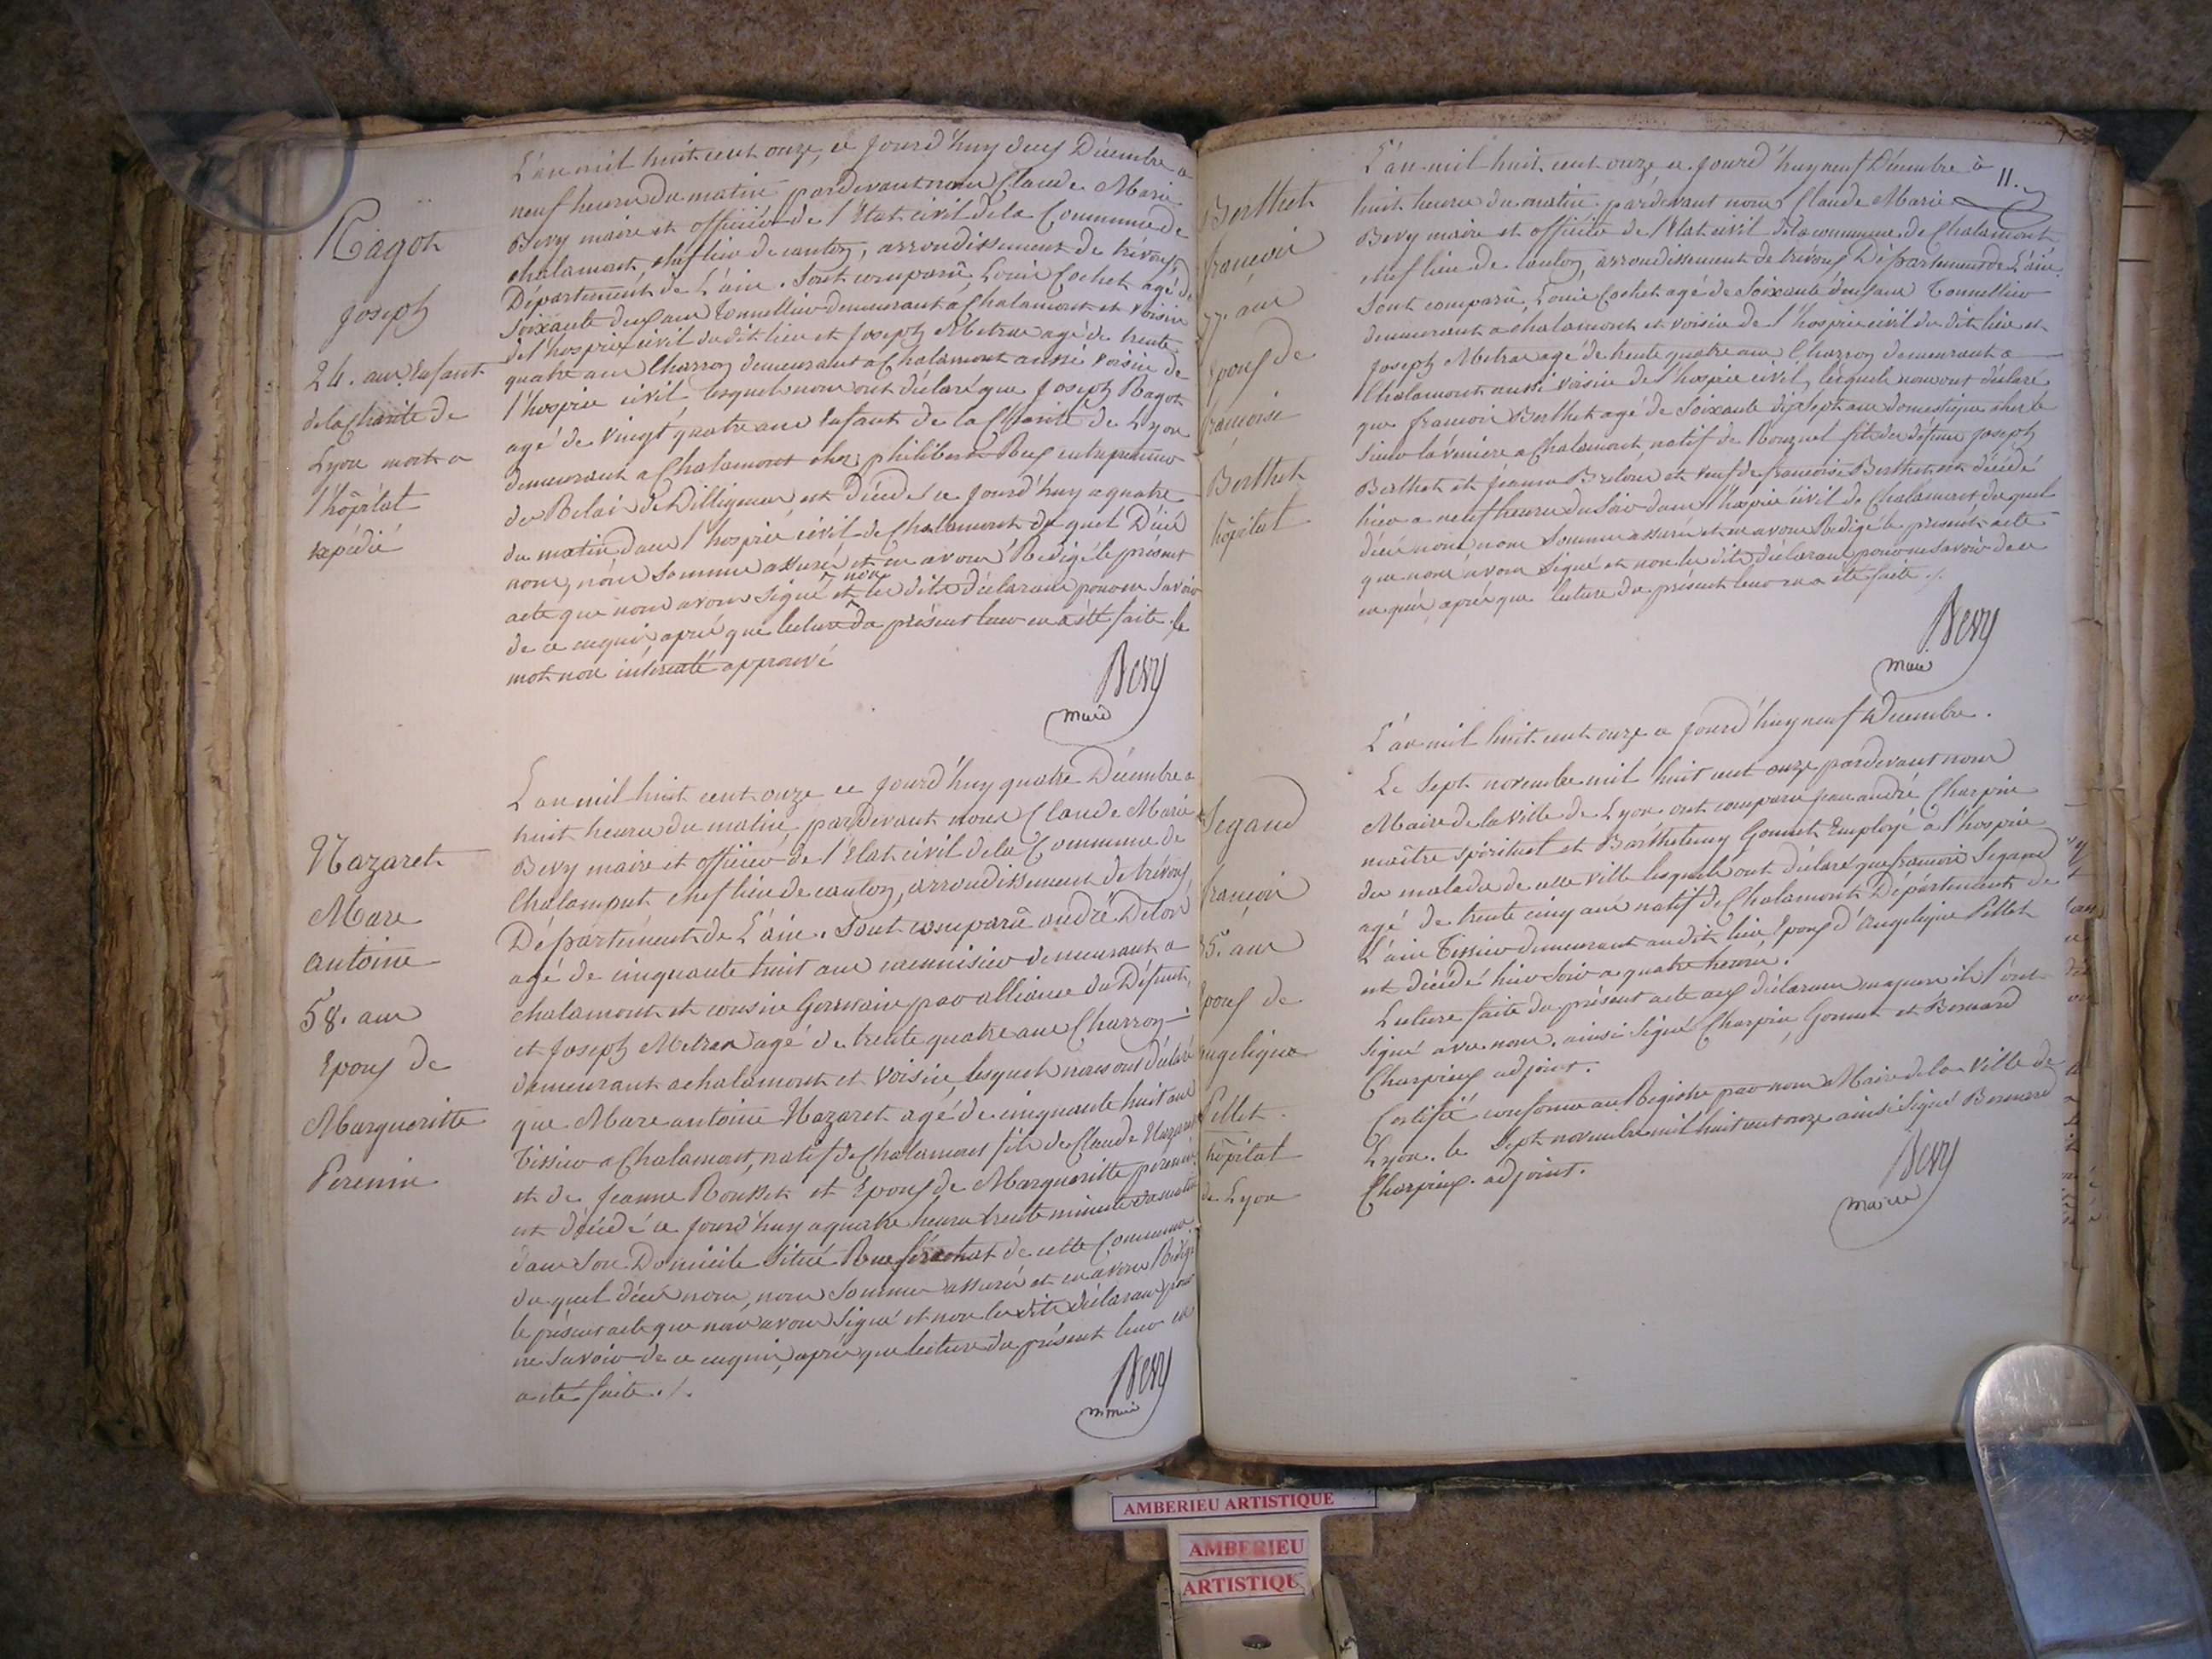 Ragot
Joseph
24. ans Enfant
de la Charité de
Lyon mort a
l'hôpital
expédié
L'an mil huit cent onze, ce jourd'huy deux Décembre a
neuf heures du matin pardevant nous Claude Marie
Bevy maire et officier de l'Etat civil de la Commune de
chalamont, chef lieu de canton, arrondissement de trévoux
Département de L'ain. Sont comparû Louis Cochet agé de
Soixante deux ans Tonnellier demeurant à Chalamont et voisin
de l'hospice civil dudit lieu et Joseph Metras agé de trente
quatre ans Charron demeurant a Chalamont aussi voisin de
l'hospice civil, lesquels nous ont déclaré que Joseph Ragot
agé de vingt quatre ans Enfant de la Charité de Lyon
demeurant a Chalamont chez philibert entrepreneur
de Relai de Dilligences est décédé ce jourd'huy a quatre
du matin dans l'hospice civil de Chalamont du quel Décès
nous, nous sommes assurés et en avons Redigé le présent
acte que nous avons signé et non les dits déclarans pour ne savoir
de ce enquis, après que lecture du présent leur en a été faite. le
mot non intercalé approuvé
Bevy
maire
Nazaret
Marc
antoine
58. ans
Epoux de
Margueritte
Perenin
L'an mil huit cent onze ce jourd'huy quatre Décembre a
huit heures du matin, pardevant nous Claude Marie
Bevy maire et officier de l'Etat civil de la Commune de
Chalamont chef lieu de canton, arrondissement de trévoux
Département de L'ain. Sont comparû andré
agé de cinquante huit ans menuisier demeurant a
chalamont et cousin Germain par alliance du Défunt,
et Joseph Metras agé de trente quatre ans Charron
demeurant a chalamont et voisin, lesquels nous ont déclaré
que Marc antoine Nazaret agé de cinquante huit ans
Tissier a Chalamont, natif de Chalamont fils de Claude Nazaret
et de Jeanne Rousset et Epoux de Margueritte
est décédé ce jourd'huy a quatre heures trente minutes du matin
dans son Domicile situé Rue de cette Commune
du quel décès nous, nous sommes assurés et en avons Redigé
le présent acte que nous avons signé et non les dits déclarans pour
ne savoir de ce enquis, après que lecture du présent leur en
a été faite ./.
Bevy
maire
11.
Berthet
françois
77. ans
Epoux de
françoise
Berthet
hôpital
L'an mil huit cent onze, ce jourd'huy neuf Décembre à
huit heures du matin pardevant nous Claude Marie
Bevy maire et officier de l'Etat civil de la commune de Chalamont
chef lieu de canton, arrondissement de trévoux Département de L'ain.
Sont comparû, Louis Cochet agé de Soixante deux ans Tonnellier
demeurant a chalamont et voisin de l'hospice civil du dit lieu et
Joseph Metras agé de trente quatre ans Charron demeurant a
Chalamont aussi voisin de l'hospice civil, lesquels nous ont déclaré
que françois Berthet agé de soixante dix sept ans domestique chez le
sieur a Chalamont, natif de fils de défunt Joseph
Berthet et jeanne et veuf de francoise Berthet est décédé
hier a neuf heures du soir dans l'hospice civil de Chalamont du quel
décès nous, nous sommes assurés et en avons Redigé le présent acte
que nous avons signé et non les dits déclarans pour ne savoir de ce
enquis, après que lecture du présent leur en a été faite ./.
Bevy
maire
L'an mil huit cent onze ce jourd'huy neuf Decembre.
Segaud
françois
35. ans
Epoux de
angelique
Pellet.
hôpital
de Lyon
Le Sept novembre mil huit cent onze pardevant nous
Maire de la ville de Lyon ont comparu jean andré Charpin
maître spirituel et Barthelemy Gonnet Employé a l'hospice
des malades de cette ville lesquels ont déclaré que francois Segaud
agé de trente cinq ans natif de Chalamont Département de
L'ain Tissier demeurant au dit lieu Epoux d'Angelique Pellet
est décédé hier soir a quatre heures.
Lecture faite du présent acte aux déclarans majeurs ils l'ont
signé avec nous, ainsi signé Charpin Gonnet et Bernard
Charpieux adjoint.
Certifié conforme au Registre par nous Maire de la Ville de
Lyon. le Sept novembre mil huit cent onze ainsi signé Bernard
Charpieux. adjoint.
Bevy
maire
AMBERIEU ARTISTIQUE
AMBERIEU
ARTISTIQUE